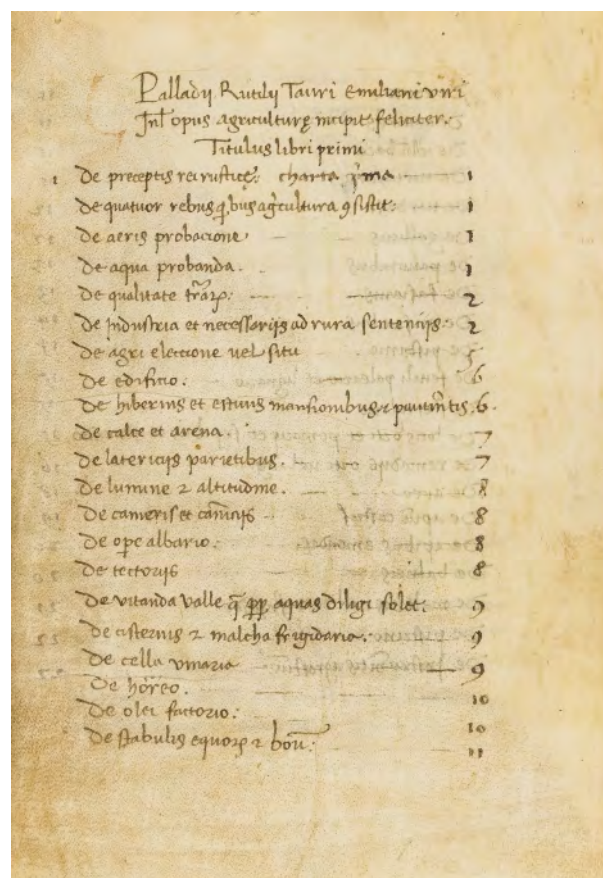 Palladij Rutilij Tauri Emiliani viri
Inl̄ opus agriculturę incipit feliciter.
Titulus libri primi
1 De preceptis rei rusticę: charta p̄ma 1
De quatuor rebus q̄bus agr̄cultura ꝯsistit: 1
De aeris probacione 1
De aqua probanda. 1
De qualitate tr̄aꝝ: 2
De Industria et necessarijs ad rura sentencijs: 2
De agri eleccione uel situ 5
De edificio. 6
De hibernis et estiuis mansionibus ⁊ pauim̄tis. 6.
De calce et arena. 7
De latericijs parietibus. 7
De lumine ⁊ altitudine. 8
De cameris et cān̄icijs 8
De oꝑe albario. 8
De tectorijs 8
De vitanda valle q̄ ꝓꝑ aquas diligi solet: 9
De cisternis ⁊ malcha frigidaria. 9
De cella vinaria 9
De hōreo. 10
De olei factorio: 10
De stabulis equoꝝ ⁊ boū: 11